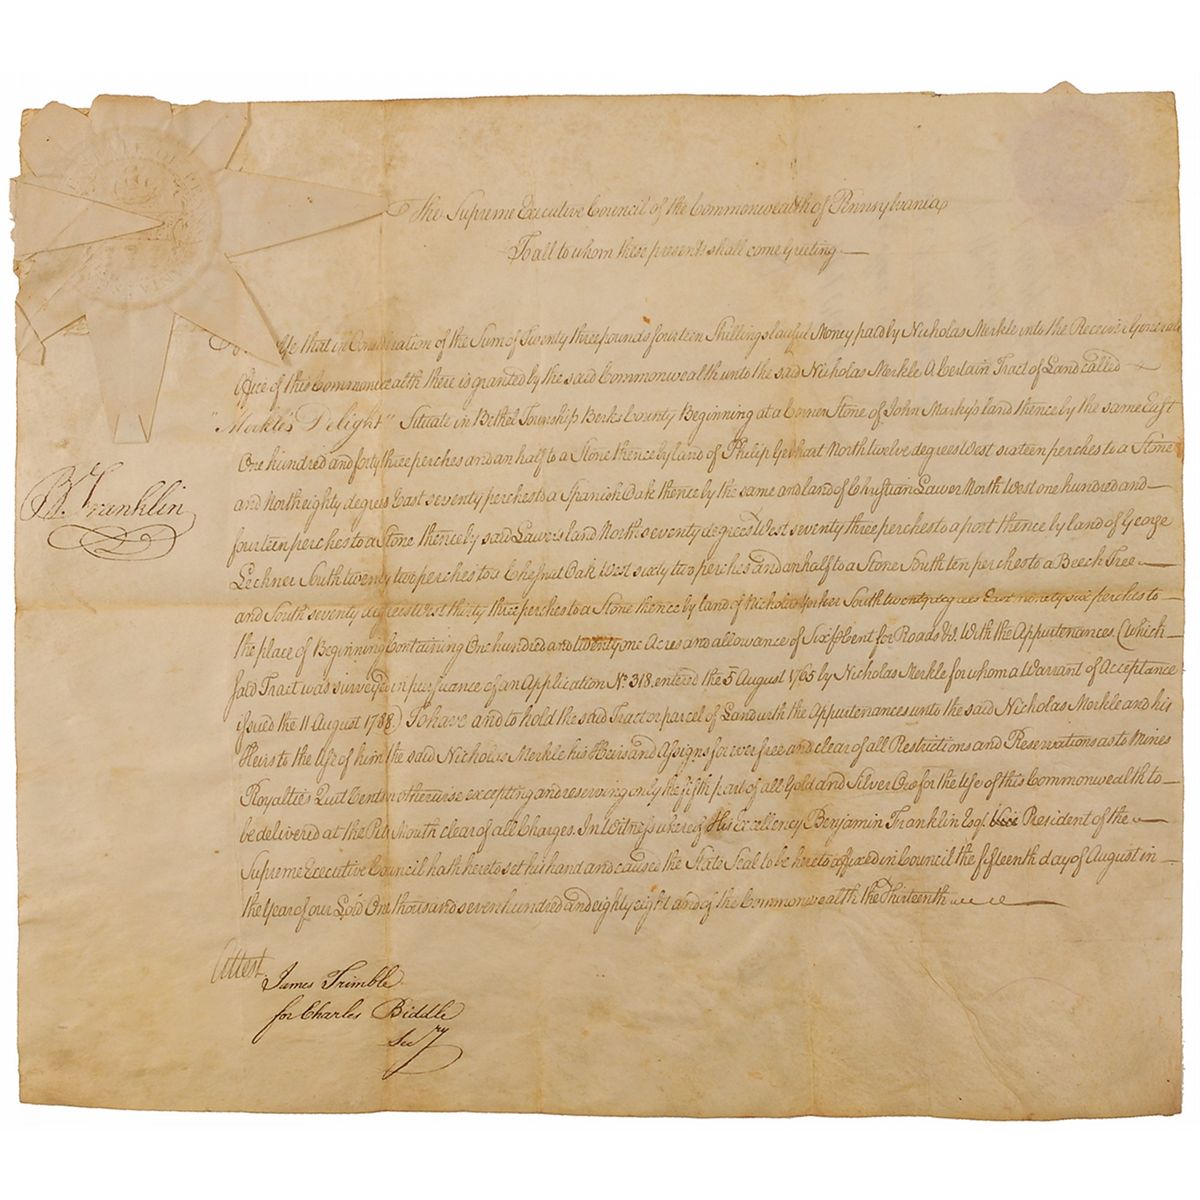 The Supreme Executive Council of the Commonwealth of Pennsylvania
To all to whom these presents shall come Greeting
that in Consideration of the Sum of Twenty three pounds fourteen Shillings lawful Money paid by Nicholas Merkle into the Receiver Generals
Office of this Commonwealth there is granted by the said Commonwealth unto the said Nicholas Merkle A Certain Tract of Land called
"Merkle's Delight" Situate in Bethel Township Berks County Beginning at a Corner Stone of John Marky's land thence by the same East
One hundred and forty three perches and an half to a Stone thence by land of Philip Gerhart North twelve degrees West sixteen perches to a Stone
and North eighty degrees East seventy perches to a Spanish Oak thence by the same and land of Christian Lawer North West one hundred and
fourteen perches to a Stone thence by said Lawers land North seventy degrees West seventy three perches to a post thence by land of George
Lechner South twenty two perches to a Chesnut Oak West sixty two perches and an half to a Stone South ten perches to a Beech Tree
and South seventy degrees West thirty three perches to a Stone thence by land of Nicholas South twenty degrees East ninety six perches to
the place of Beginning Containing One hundred and twenty one Acres and allowance of Six P Cent for Roads &c. With the Appurtenances (which
said Tract was surveyed in pursuance of an Application No. 318. entered the 5 August 1765 by Nicholas Merkle for whom a Warrant of Acceptance
issued the 11 August 1788) To have and to hold the said Tract or parcel of Land with the Appurtenances unto the said Nicholas Merkle and his
Heirs to the Use of him the said Nicholas Merkle his Heirs and Assigns forever free and clear of all Restrictions and Reservations as to Mines
Royalties Quit Rents or otherwise excepting and reserving only the fifth part of all Gold and Silver Ore for the Use of this Commonwealth to
be delivered at the Pits Mouth clear of all Charges. In Witness whereof His Excellency Benjamin Franklin Esqr. Vice President of the
Supreme Executive Council hath hereto set his hand and caused the State Seal to be hereto affixed in Council the fifteenth day of August in
the Year of our Lord One thousand seven hundred and eighty eight and of the Commonwealth the Thirteenth
B. Franklin
Attest
James Trimble
for Charles Biddle
Secry